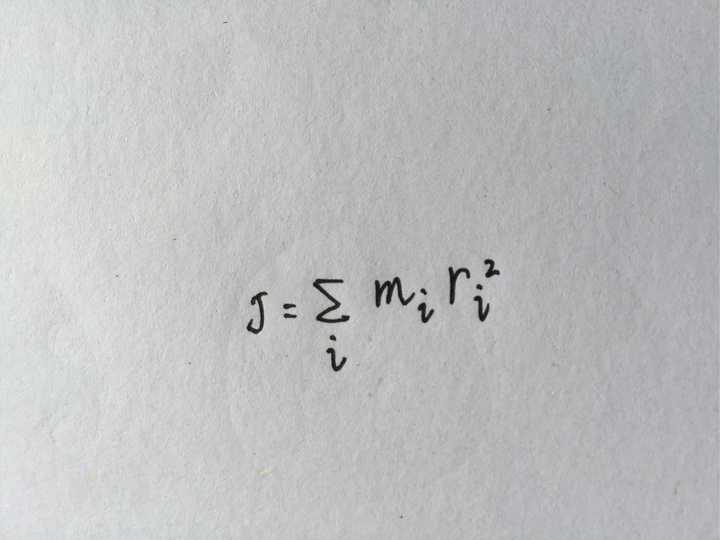 J = ∑_i m_i r_i^2